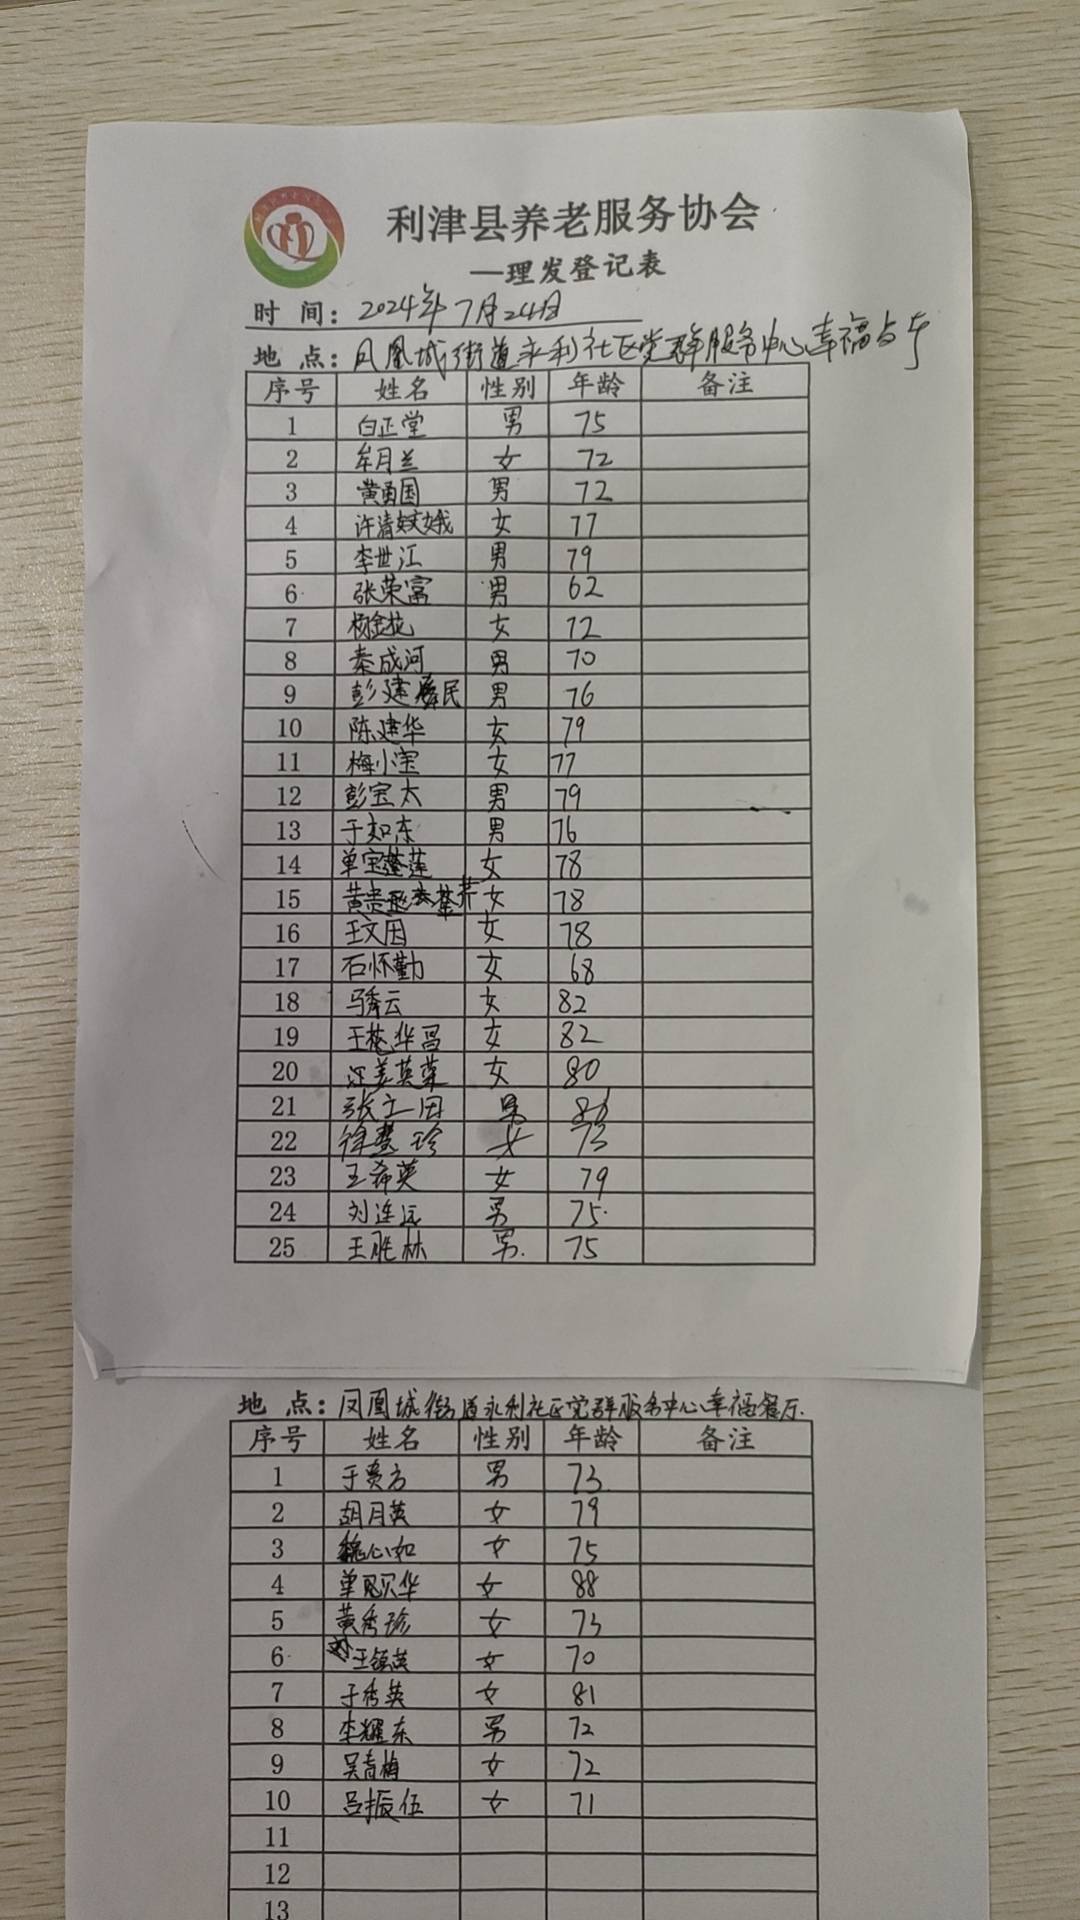 利津县养老服务协会
—理发登记表
时 间: 2024年7月24日
地 点: 凤凰城街道永利社区党群服务中心幸福
序号 姓名 性别 年龄 备注
1 白正堂 男 75
2 牟月兰 女 72
3 黄勇国 男 72
4 许清娥 女 77
5 李世江 男 79
6 张荣富 男 62
7 杨金花 女 72
8 秦成河 男 70
9 彭建民 男 76
10 陈建华 女 79
11 梅小宝 女 77
12 彭宝太 男 79
13 于如东 男 76
14 单宝莲 女 78
15 女 78
16 王文因 女 78
17 石怀勤 女 68
18 马秀云 女 82
19 女 82
20 女 80
21 男
22 女 73
23 王希英 女 79
24 刘连远 男 75
25 王胜林 男 75
地 点: 凤凰城街道永利社区党群服务中心幸福餐厅
序号 姓名 性别 年龄 备注
1 于贵方 男 73
2 胡月英 女 79
3 魏心如 女 75
4 女 88
5 黄秀珍 女 73
6 王镇英 女 70
7 于秀英 女 81
8 李耀东 男 72
9 吴青梅 女 72
10 吕振伍 女 71
11
12
13